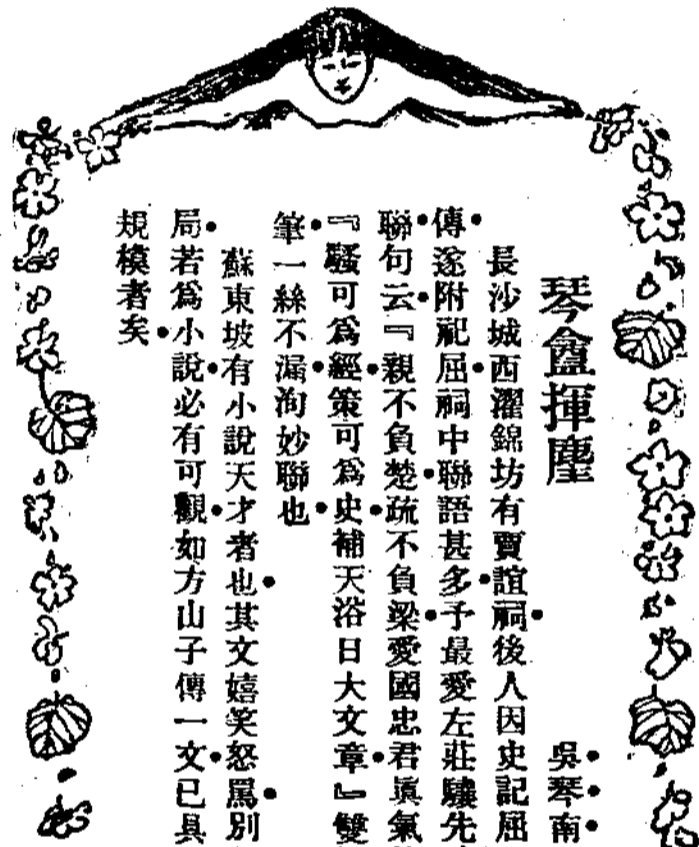 琴盦揮麈
吳琴南
長沙城西濯錦坊有賈誼祠後人因史記屈
傳遂附祀屈祠中聯語甚多予最愛左莊驥先
聯句云『親不負楚疏不負梁愛國忠君眞氣
『騷可爲經策可爲史補天浴日大文章』雙
筆一絲不漏洵妙聯也
蘇東坡有小說天才者也其文嬉笑怒罵別
局若爲小說必有可觀如方山子傳一文已具
規模者矣